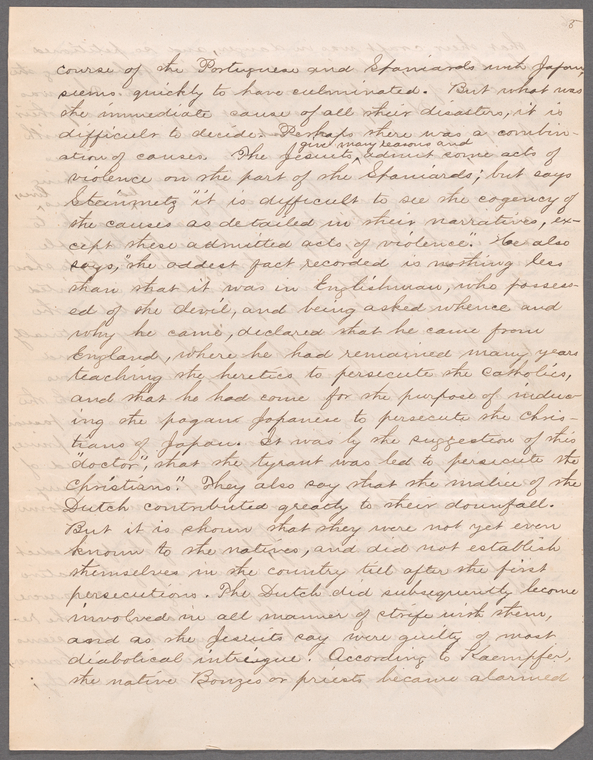 5
course of the Portuguese and Spaniards with Japan,
seems quickly to have culminated. But what was
the immediate cause of all their disasters, it is
difficult to decide. Perhaps there was a combin-
give many reasons and
ation of causes. The Jesuits ‸ admit some acts of
violence on the part of the Spaniards; but says
Steinmetz "it is difficult to see the cogency of
the causes as detailed in their narratives, ex-
cept these admitted acts of violence". He also
says, "the oddest fact recorded is nothing less
than that it was in Englishman, who possess-
ed of the devil, and being asked whence and
why he came, declared that he came from
England, where he had remained many years
teaching the heretics to persecute the Catholics,
and that he had come for the purpose of induc-
ing the pagan Japanese to persecute the Chris-
tians of Japan. It was by the suggestion of this
"doctor", that the tyrant was led to persecute the
Christians." They also say that the malice of the
Dutch contributed greatly to their downfall.
But it is shown that they were not yet even
known to the natives, and did not establish
themselves in the country till after the first
persecutions. The Dutch did subsequently become
involved in all manner of strife with them,
and as the Jesuits say were guilty of most
diabolical intrigue. According to Kaempfer,
the native Bonzes or priests became alarmed